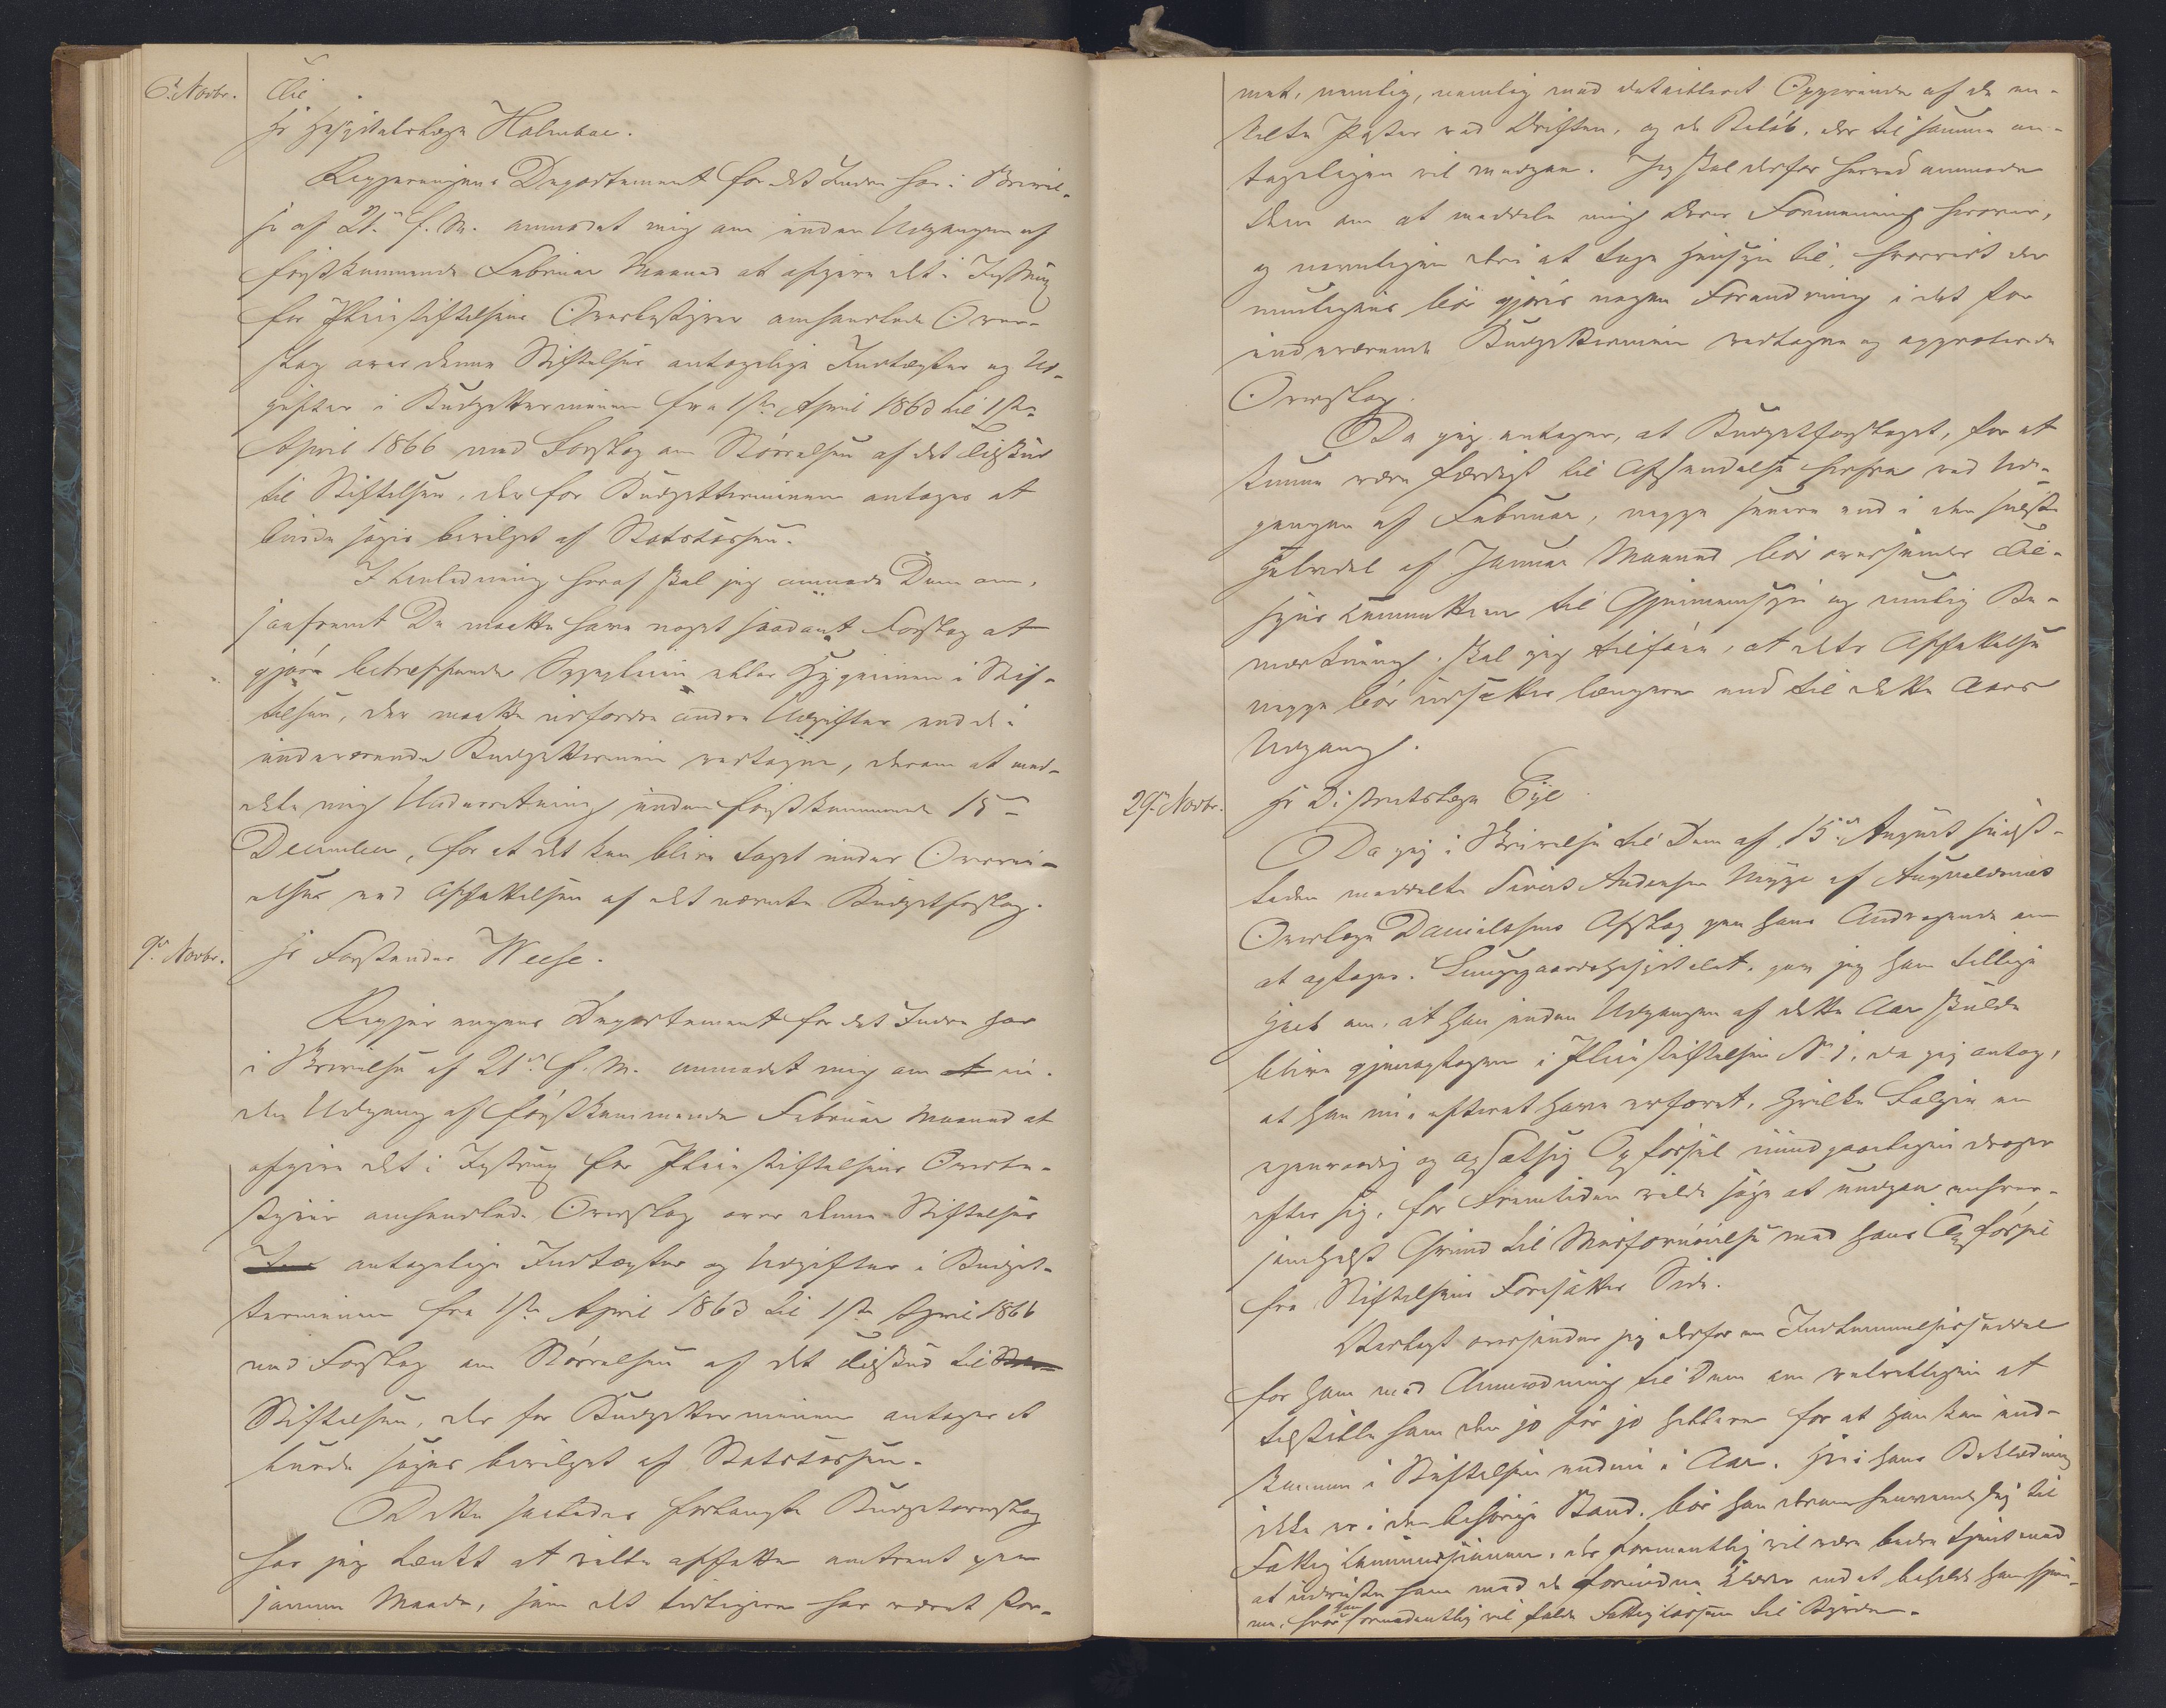 6te Novbr. Til
Hr Hospitalslæge Holmboe.
Regjeringens Departement for det Indre har i Skrivel-
se af 21de f. M. anmodet mig om inden Udgangen af
førstkommende Februar Maaned at afgive det i Instrux
for Pleiestiftelsens Overbestyrer omhandlede Over-
slag over denne Stiftelses antagelige Indtægter og Ud-
gifter i Budgetterminen fra 1ste April 1863 til 1ste
April 1866 med Forslag om Størrelsen af det Tilskud
til Stiftelsen, der for Budgetterminen antages at
burde søges bevilget af Statskassen.
I Anledning heraf skal jeg anmode Dem om,
saafremt De maatte have noget saadant Forslag at
gjøre betræffende Sygepleien eller Hygieinen i Stif-
telsen, der maatte udfordre andre Udgifter end de i
indeværende Budgettermin vedtagne, derom at med-
dele mig Underretning inden førstkommende 15de
December, for at det kan blive taget under Overvei-
elser ved Affattelsen af det nævnte Budgetforslag.
9de Novbr. Hr Forstander Weese.
Regjeringens Departement for det Indre har
i Skrivelse af 21de f. M. anmodet mig om at in-
den Udgang af førstkommende Februar Maaned at
afgive det i Instrux for Pleiestiftelsens Overbe-
styrer omhandlede Overslag over denne Stiftelses
antagelige Indtægter og Udgifter i Budget-
terminen fra 1ste April 1863 til 1ste April 1866
med Forslag om Størrelsen af det Tilskud til
Stiftelsen, der for Budgetterminen antages at
burde søges bevilget af Statskassen.
Dette saaledes forlangte Budgetoverslag
har jeg tænkt at ville affatte omtrent paa
samme Maade, som det tidligere har været for-
met, nemlig, nemlig med detailleret Opgivende af de en-
kelte Poster ved Driften, og de Beløb, der til samme an-
tageligen vil medgaae. Jeg skal derfor herved anmode
Dem om at meddele mig Deres Formening herover,
og navnligen deri at tage Hensyn til, hvorvidt der
muligens bør gjøres nogen Forandring i det for
indeværende Budgettermin vedtagne og approberede
Overslag.
Da jeg antager, at Budgetforslaget, for at
kunne være færdigt til Afsendelse herfra ved Ud-
gangen af Februar, neppe senere end i den sidste
Halvdel af Januar Maaned bør oversendes Til-
synskommitteen til Gjennemsyn og mulig Be-
mærkning, skal jeg tilføie, at dets Affattelse
neppe bør udsættes længere end til dette Aars
Udgang.
29de Novbr. Hr Distriktslæge Eije.
Da jeg i Skrivelse til Dem af 15de August sidst-
leden meddelte Sivert Andersen Nygge af Augvaldsnæs
Overlæge Danielssens Afslag paa hans Andragende om
at optages i Lungegaardshospitalet, gav jeg ham tillige
Haab om, at han inden Udgangen af dette Aar skulde
blive gjenoptagen i Pleiestiftelsen No 1, da jeg antog,
at han nu, efterat have erfaret, hvilke Følger en
egenraadig og opsætsig Opførsel uundgaaeligen drager
efter sig, for Fremtiden vilde søge at undgaa enhver-
somhelst Grund til Misfornøielse med hans Opførsel
fra Stiftelsens Foresattes Side.
Vedlagt oversender jeg derfor en Indkommelsesseddel
for ham med Anmodning til Dem om velvilligen at
tilstille ham den jo før jo hellere for at han kan ind-
komme i Stiftelsen endnu i Aar. Hvis hans Beklædning
ikke er i den behørige Stand, bør han derom henvende sig til
Fattigkommissionen, der formentlig vil være bedre tjent med
at udruste ham med de fornødne Klæder end at beholde ham hjem-
me, hvor han formodentlig vil falde Fattigkassen til Byrde.